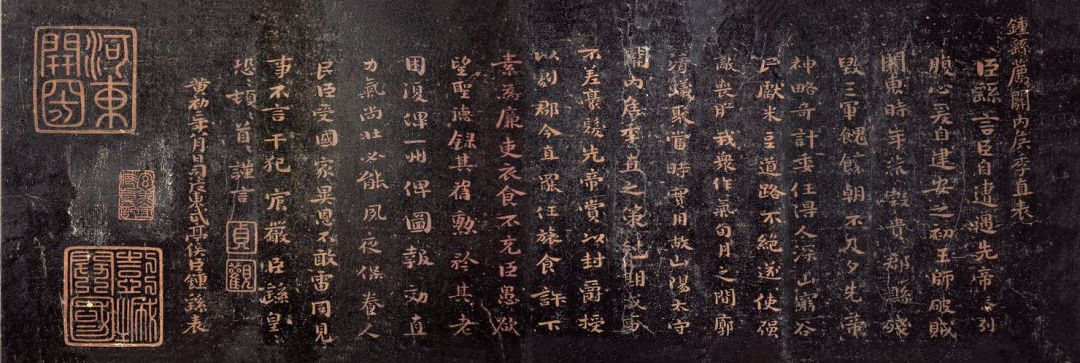 鍾繇薦關內侯季直表
臣繇言臣自遭遇先帝忝列
腹心爰自建安之初王師破賊
關東時年荒穀貴郡縣殘
毀三軍餽饟朝不及夕先帝
神略奇計委任得人深山窮谷
民獻米豆道路不絕遂使強
敵喪膽我衆作氣旬月之間廓
清蟻聚當時實用故山陽太守
關內侯季直之策剋期成事
不差豪髮先帝賞以封爵授
以劇郡今直罷任旅食許下
素爲廉吏衣食不充臣愚欲
望聖德錄其舊勳矜其老
困復俾一州俾圖報効直
力氣尚壯必能夙夜保養人
民臣受國家異恩不敢雷同見
事不言干犯宸嚴臣繇皇〻
恐〻頓〻首〻謹言
貞觀
黃初二年八月日司徒東武亭侯臣鍾繇表
河東開
彭城開國